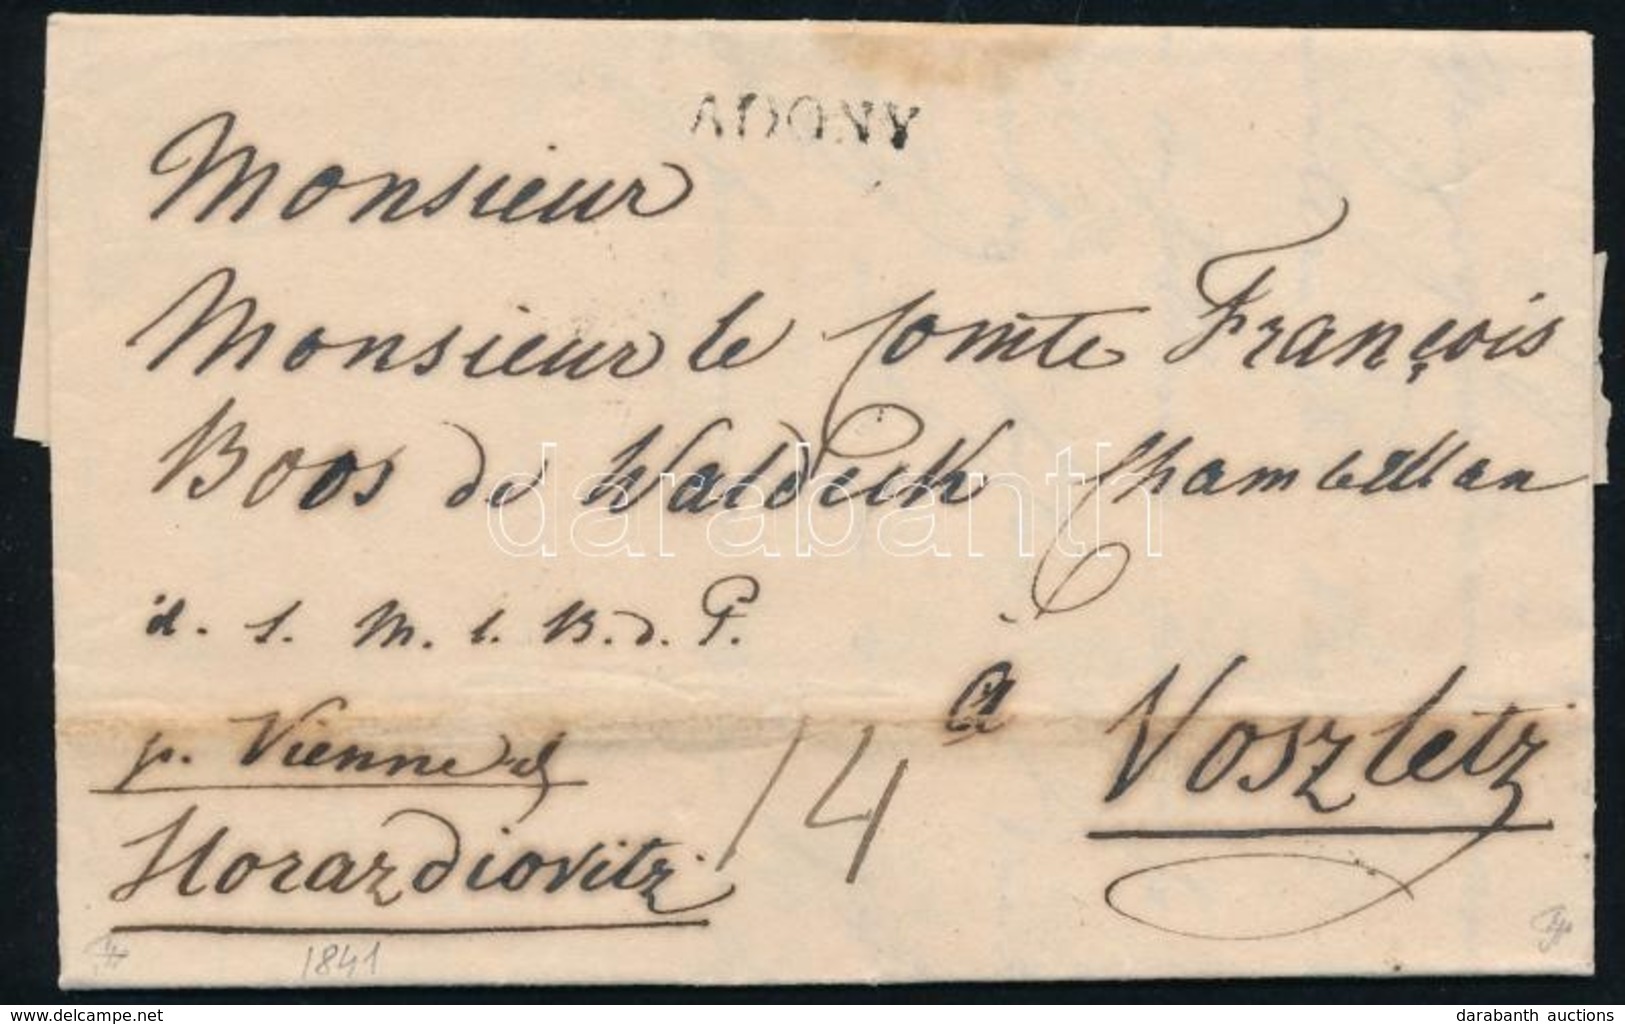 ADONY
Monsieur
Monsieur le Comte François
Boos de Waldeck Chambellan
d. S. M. l. R. d. P.
p. Vienne et
Horazdiovitz
14
à Voszletz
1841
darabanth
www.delcampe.net
darabanth auctions